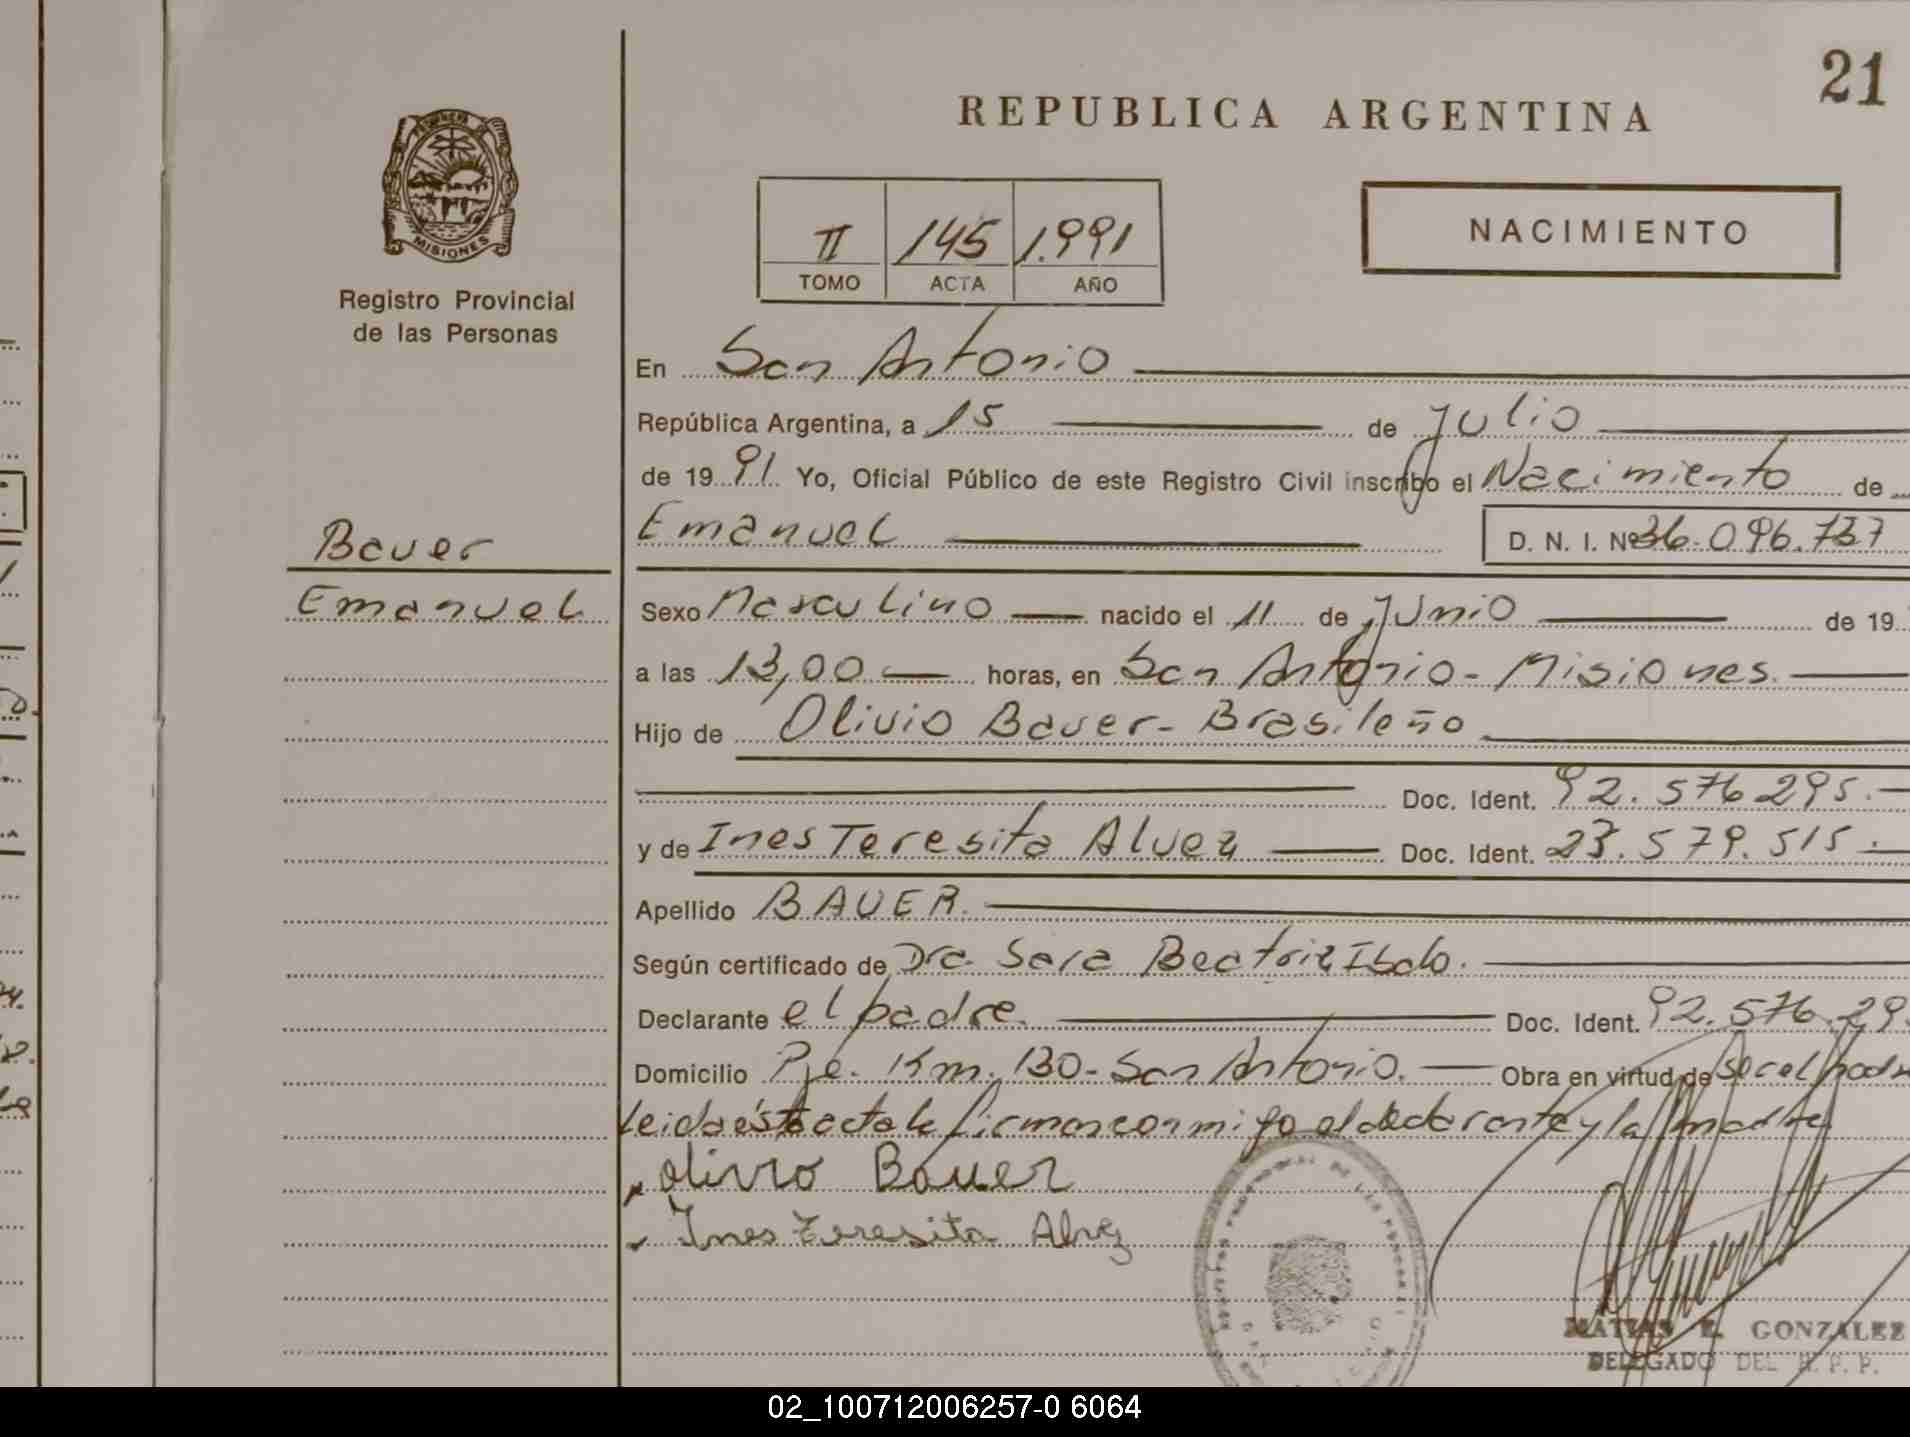 21
REPUBLICA ARGENTINA
PROVINCIA DE
MISIONES
Registro Provincial
de las Personas
II 145 1.991
TOMO ACTA AÑO
NACIMIENTO
En San Antonio
República Argentina, a 15 de Julio
de 1991 Yo, Oficial Público de este Registro Civil inscribo el Nacimiento de
Emanuel D. N. I. Nº 36.096.737
Bauer
Emanuel
Sexo Masculino nacido el 11 de Junio de 19
a las 13,00 horas, en San Antonio - Misiones.
Hijo de Olivio Bauer - Brasileño
Doc. Ident. 92.576295.
y de Ines Teresita Alvez Doc. Ident. 23.579.515.
Apellido BAUER.
Según certificado de Dra. Sara Beatriz
Declarante el padre. Doc. Ident. 92.576.29
Domicilio Pje. Km. 130 - San Antonio. Obra en virtud de ser el padre
Leida ésta acta la firman conmigo el declarante y la madre
Olivio Bauer
Ines Teresita Alvez
MATIAS E. GONZALEZ
DELEGADO DEL R. P. P.
02_100712006257-0 6064